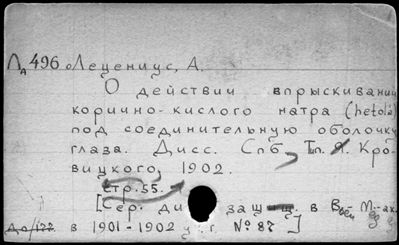 Лд 496 Лецениус, А.
О действии впрыскивании
корично-кислого натра (hetol'a)
под соединительную оболочку
глаза. Дисс. Спб, Тип. Я. Кро-
вицкого, 1902.
стр. 55.
[Сер. ди защ в Воен М.-ак.
в 1901-1902 у г. № 87]